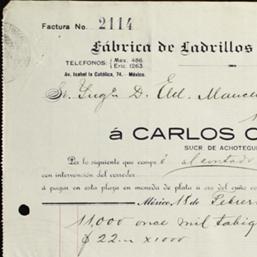 Factura No. 2114
Fábrica de Ladrillos
TELEFONOS: Mex. 486. Eric. 1263.
Av. Isabel la Católica, 74. - México.
Sr. Ingº D. Ed.
á CARLOS
SUCR. DE ACHOTEGU
Por lo siguiente que compr é al contado
con intervención del corredor
á pagar en esta plaza en moneda de plata u oro del cuño
México, 18 de Febrero
11,000 once mil tabiq
$ 22.00 x 1000